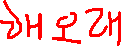 해오래